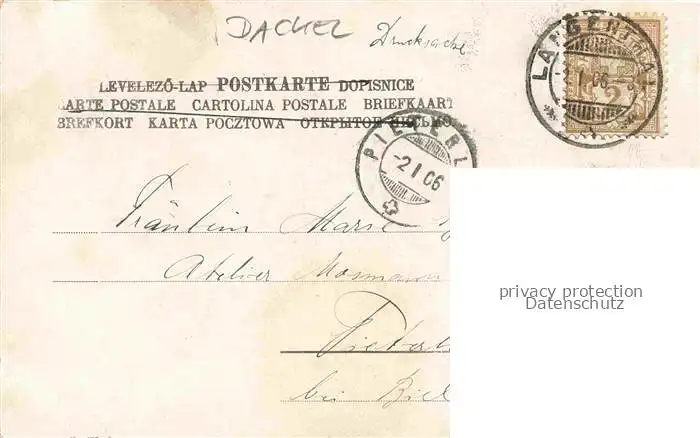 DACKEL
Drucksache
LEVELEZŐ-LAP POSTKARTE DOPISNICE
CARTE POSTALE CARTOLINA POSTALE BRIEFKAART
BREFKORT KARTA POCZTOWA ОТКРЫТОЕ ПИСЬМО
LANGENTHAL
PIETERL
-2 I 06
Fräulein Marie
Atelier Mosmann
bei Biel
privacy protection
Datenschutz